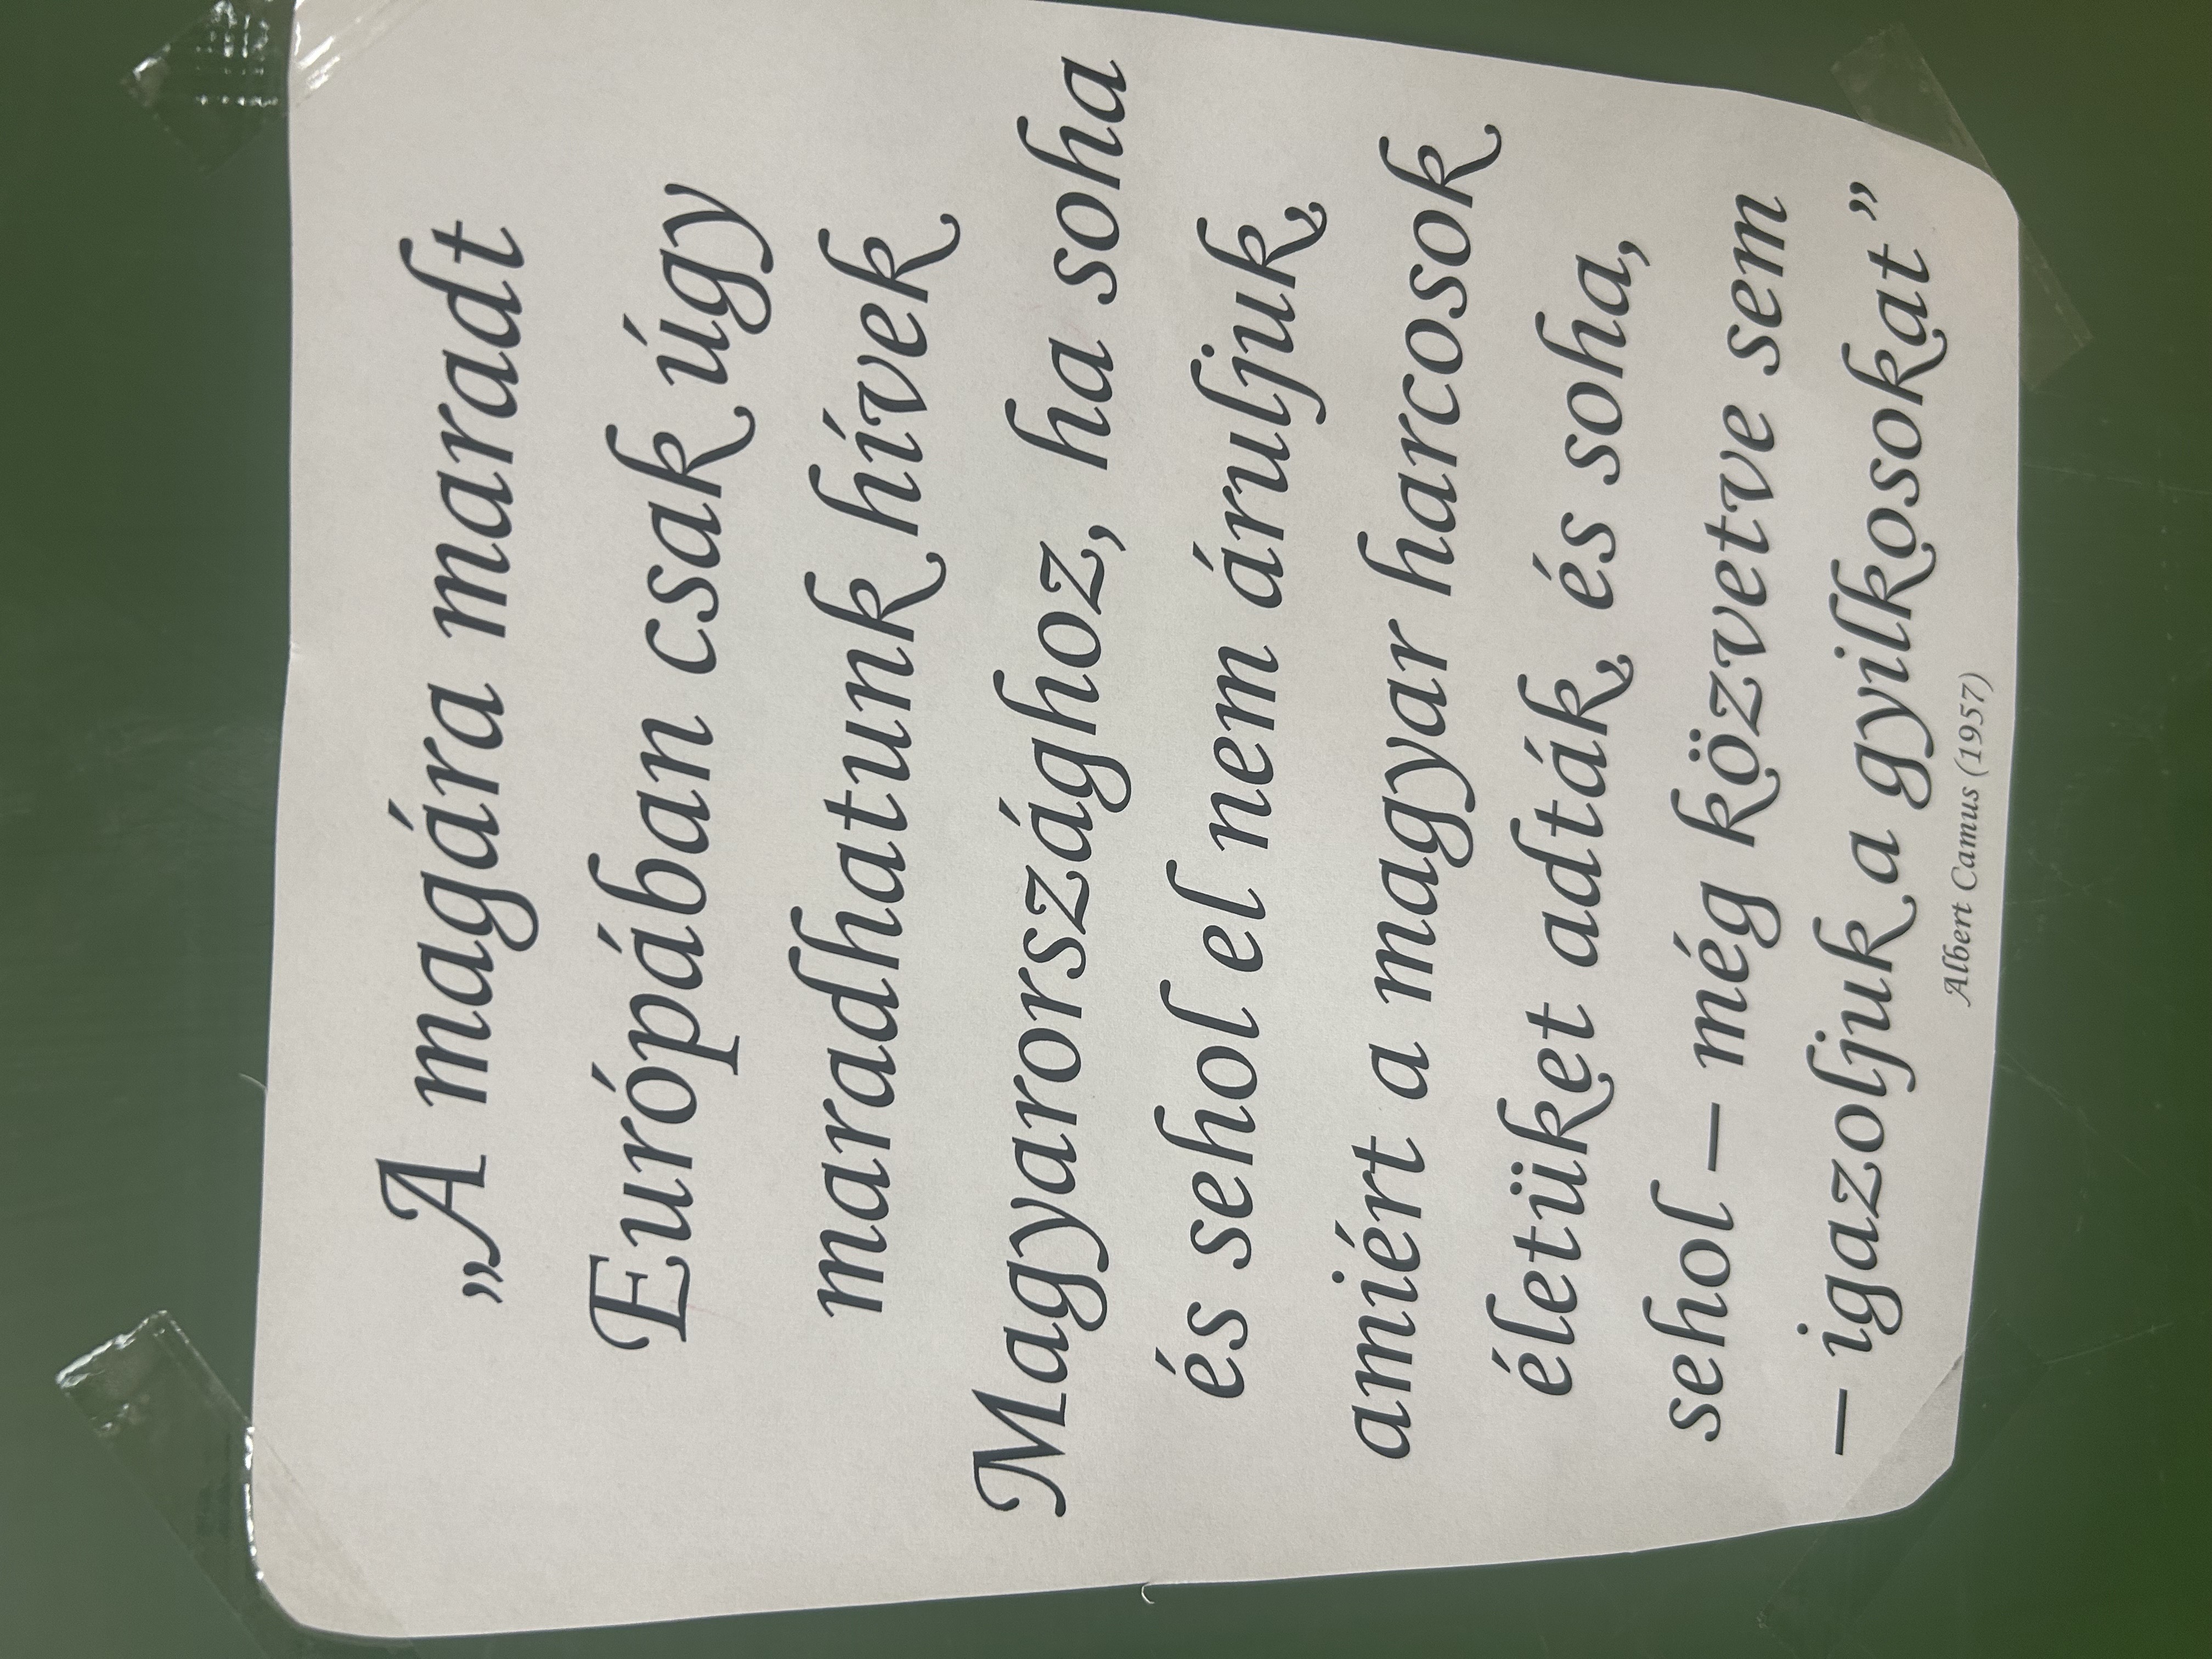 „A magára maradt
Európában csak úgy
maradhatunk hívek
Magyarországhoz, ha soha
és sehol el nem áruljuk,
amiért a magyar harcosok
életüket adták, és soha,
sehol – még közvetve sem
– igazoljuk a gyilkosokat”
Albert Camus (1957)